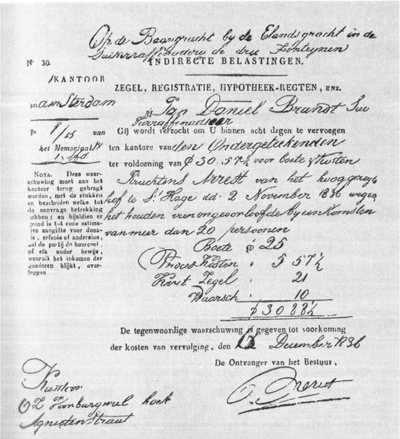 Op de Baangracht by de Elandsgracht in de
Suikerraffinadery de drie Fonteynen
No 30.
INDIRECTE BELASTINGEN.
KANTOOR
ZEGEL, REGISTRATIE, HYPOTHEEK-REGTEN, ENZ.
van Amsterdam
Jan Daniel Brandt Sui
kerraffinadeur
No 1/15 van
het Memoriaal
Gij wordt verzocht om U binnen acht dagen te vervoegen
ten kantore van den Ondergeteekenden
ter voldoening van ƒ 30.57½ voor boete & Kosten
Krachtens Arrest van het hoog geregts
hof te s'Hage dd. 2 November 1836 wegens
het houden eener ongeoorloofde byeenkomsten
van meer dan 20 persoonen
NOTA. Deze waar-
schuwing moet aan het
kantoor terug gebragt
worden, met de stukken
en bescheiden welke tot
de aanvrage betrekking
hebben; en bijaldien de
grond is tot eene ontva-
dona-
tie, erfenis of andersins,
zal de partij de bouwstof,
of elk ander bewijs,
waaruit het inkomen der
goederen blijkt, over-
leggen
Boete ƒ 25
Proces Kosten " 5 57½
Zegel " 21
Waarsch " 10
ƒ 30 88½
De tegenwoordige waarschuwing is gegeven tot voorkoming
der kosten van vervolging, den 12 December 1836
De Ontvanger van het Bestuur,
Kantoor
OZ Voorburgwal hoek
Agnieten Straat